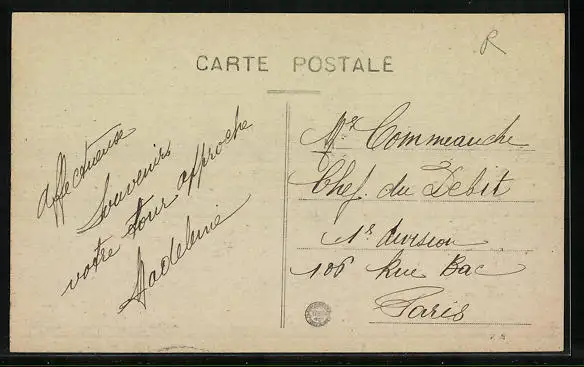 CARTE POSTALE
R
affectueuse
Souvenirs
votre tour approche
Madeleine
Mr Commeauche
Chef. du Debit
1re division
106 Rue Bac
Paris